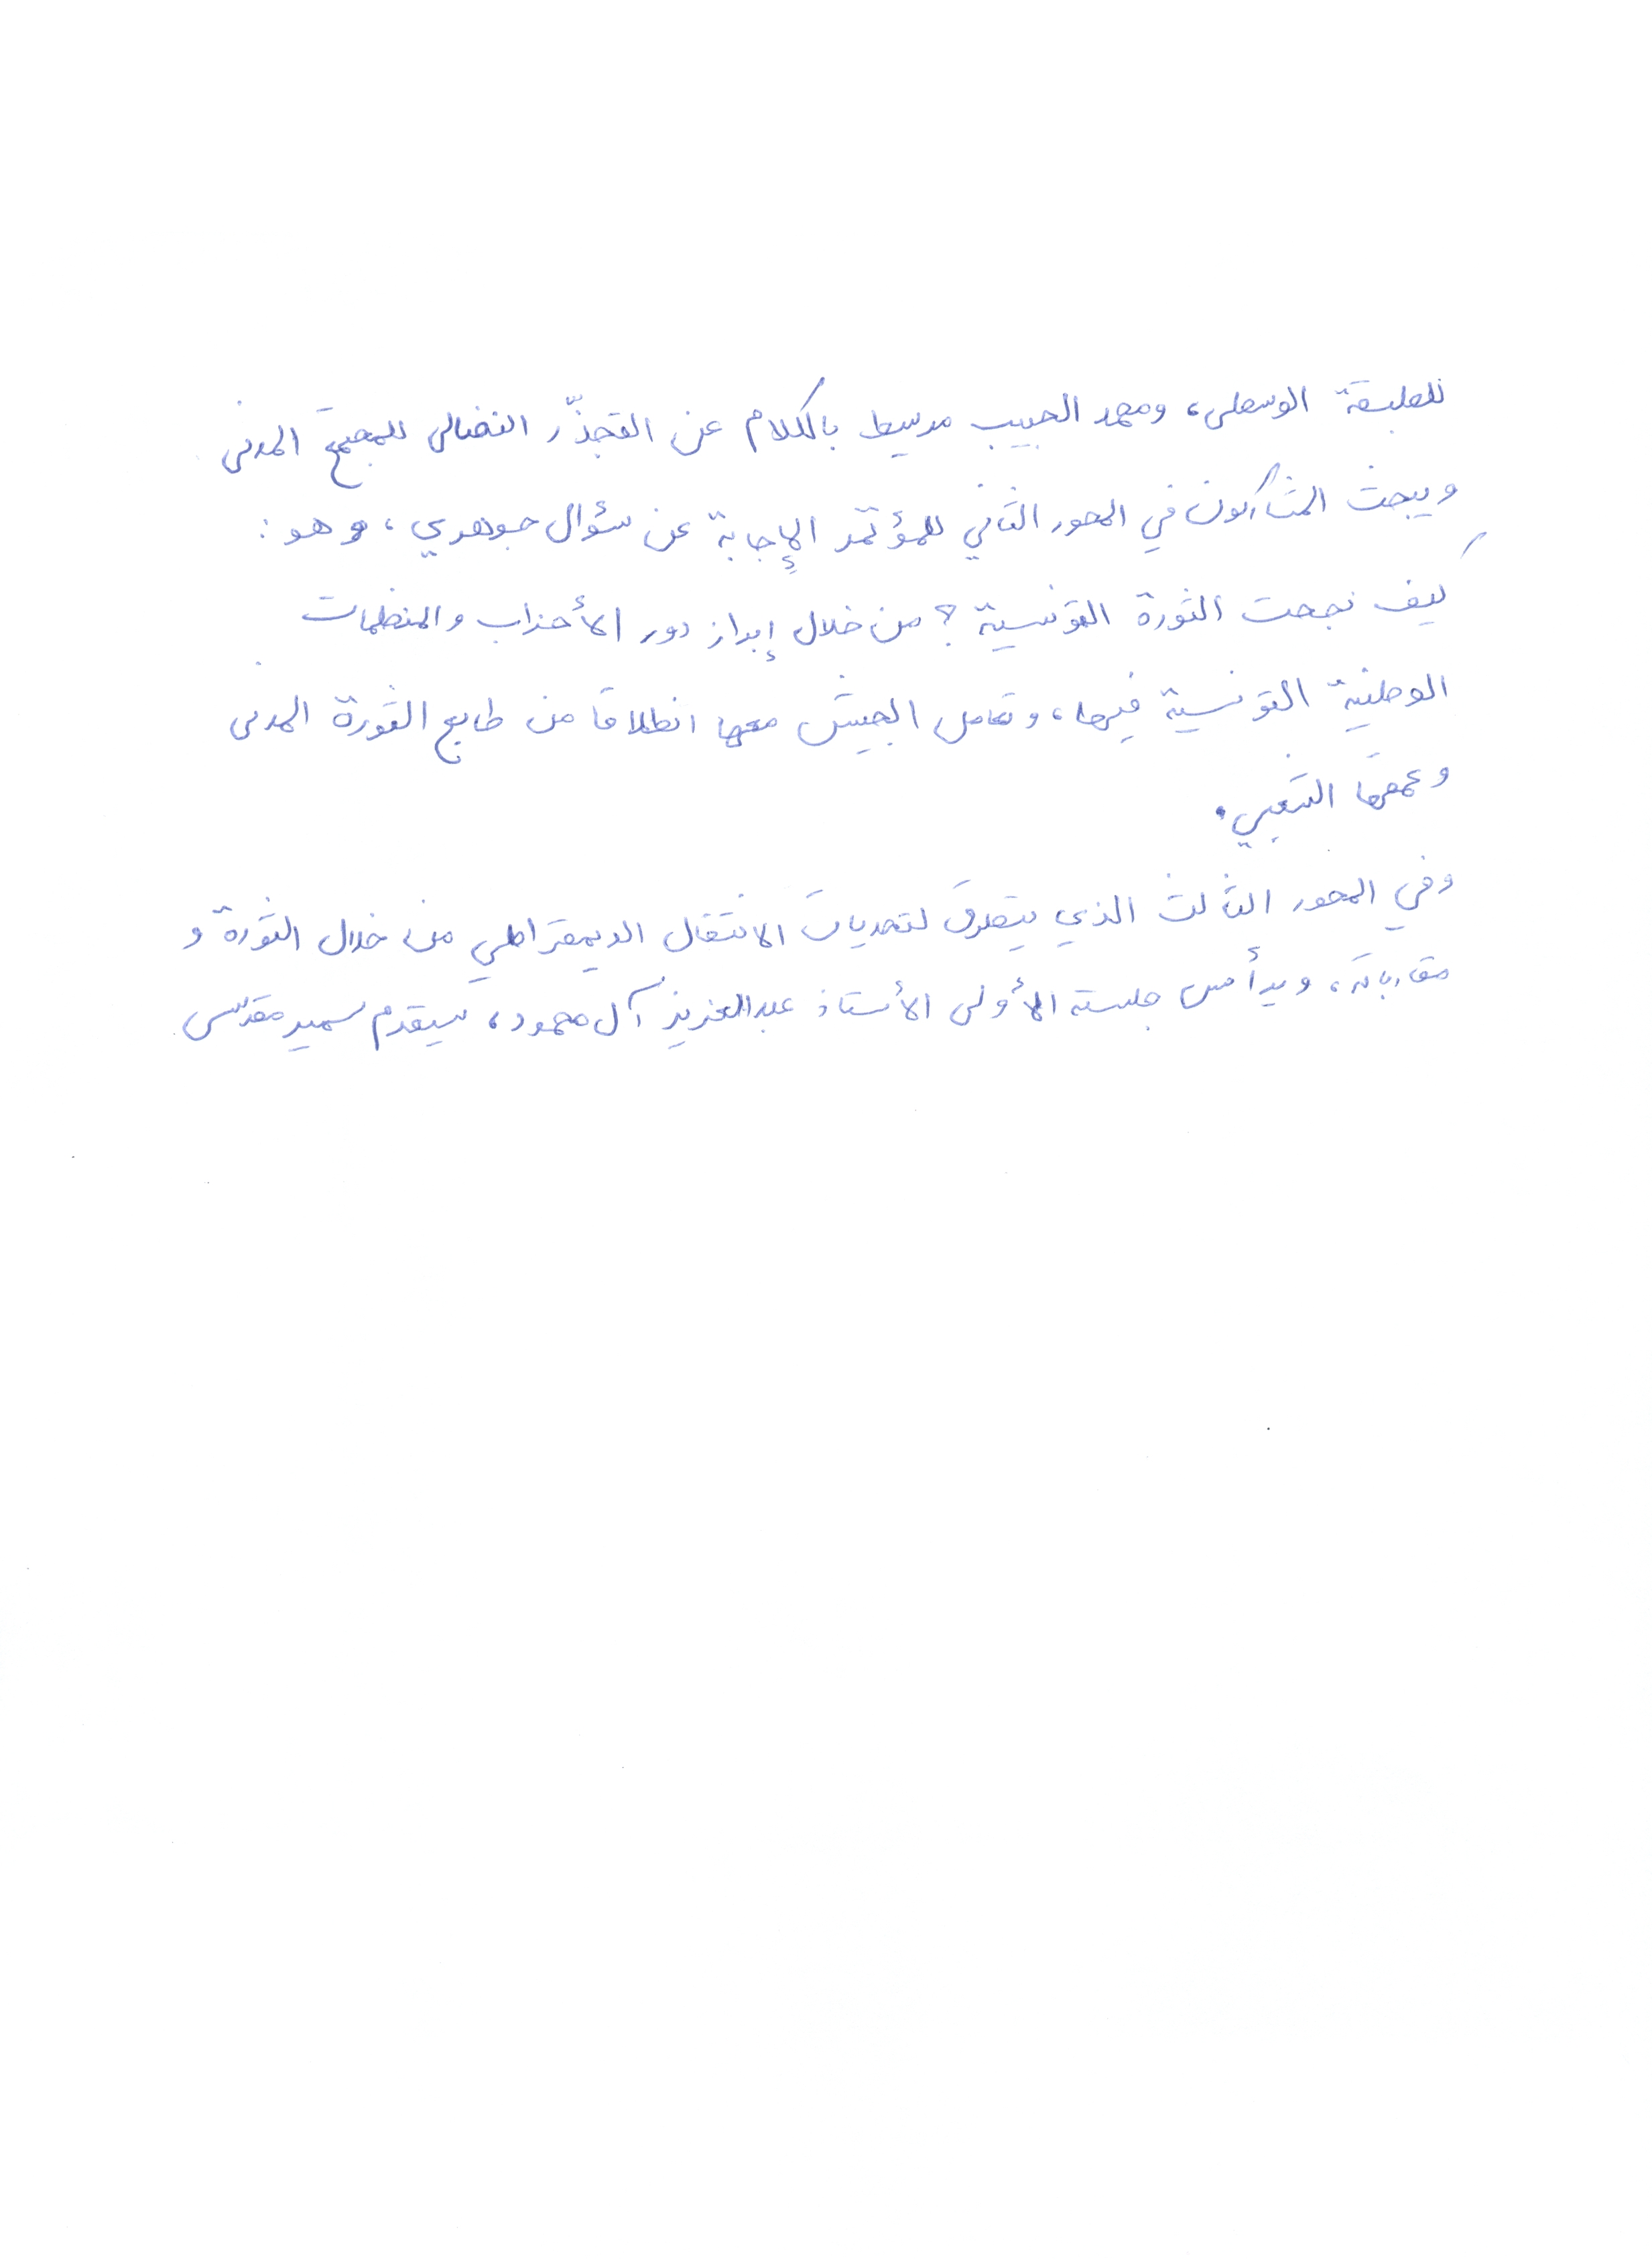 للطبقة الوسطى، ومحمد الحبيب مرسيط بالكلام عن التجذّر النضالي للمجتمع المدني
ويبحث المشاركون في المحور الثاني للمؤتمر الإجابة عن سؤال جوهري، وهو:
كيف نجحت الثورة التونسية؟ من خلال إبراز دور الأحزاب والمنظمات
الوطنية التونسية فيها، وتعامل الجيش معها انطلاقا من طابع الثورة المدني
وعمقها الشعبي.
وفي المحور الثالث الذي يتطرق لتحديات الانتقال الديمقراطي من خلال الثورة و
مقارباته، ويرأس جلسته الأولى الأستاذ عبدالعزيز آل محمود، سيقدم سمير مقدّسي